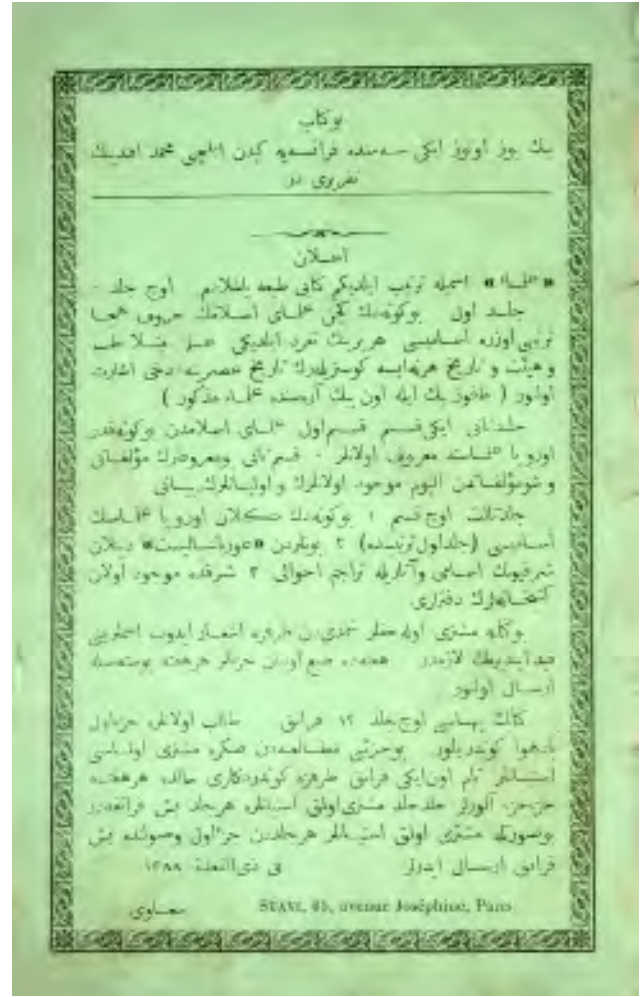 بو کتاب
بیك یوز اوتوز ایکی سنه‌سنده فرانسه‌یه کیدن ایلچی محمد افندینك
تقریری در
اعلان
«علما» اسمیله ترتیب ایلدیکم کتابی طبعه باشلادم اوچ جلد -
جلد اول بوکونه‌دك کچن علمای اسلامك حروف هجا
ترتیبی اوزره اسامیسی هربرینك تفرد ایلدیکی علم مثلا طب
و هیئت و تاریخ هرنه‌ایسه کوستریله‌رك تاریخ عصرینه دخی اشارت
اولنور ( طقوز بیك ایله اون بیك آره‌سنده علما مذکور )
جلد ثانی ایکی قسم قسم اول علمای اسلامدن بوکونه‌قدر
اوروپا علماسنه معروف اولانلر - قسم ثانی ومعروفلرك مؤلفاتی
و شومؤلفاتدن الیوم موجود اولانلرك و اولمیانلرك بیانی
جلد ثالث اوچ قسم ١ بوکونه‌دك کلان اوروپا علماسنك
اسامیسی (جلد اول ترتیبنده) ٢ بونلردن «اوریانتالیست» دینلان
شرقیونك اسامی وآثاریله تراجم احوالی ٣ شرقده موجود اولان
کتبخانه‌لرك دفترلری
بوکا مشتری اوله‌جقلر شمدیدن طرفمزه اشعار ایدوب اسملرینی
قید ایتدیرمك لازمدر هفته‌ده طبع اولنان جزؤلر هرهفته پوسته‌سیله
ارسال اولنور
کتابك بهاسی اوچ جلد ١٢ فرانق طالب اولانلره جزء اول
بادهوا کوندریلور بوجزئی مطالعه‌دن صکره مشتری اولماسی
استیانلر تام اون ایکی فرانق طرفمزه کوندردکلری حالده هرهفته
جزء جزء آلورلر جلد جلد مشتری اولمق استیانلره هرجلد بش فرانقه‌در
بوصورتله مشتری اولمق استیانلر هرجلدن جزء اول وصولنده بش
فرانق ارسال ایدرلر فی ذی القعدة ١٢٨٨
سعاوی SUAVI, 65, avenue Joséphine, Paris